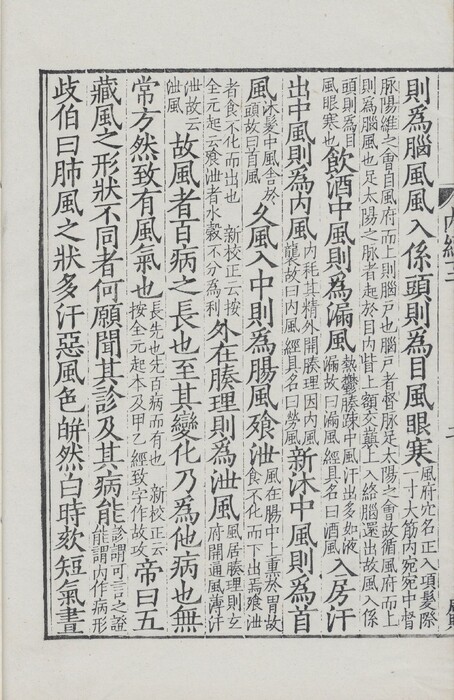 則爲腦風風入係頭則爲目風眼寒風府穴名正入項髮際一寸大筋內宛宛中督
脉陽維之會自風府而上則腦戶也腦戶者督脉足太陽之會故循風府而上則爲腦風也足太陽之脉者起於目內眥上額交巔上入絡腦還出故風入係
頭則爲目風眼寒也飲酒中風則爲漏風熱鬱腠疎中風汗出多如液漏故曰漏風經具名曰酒風入房汗
出中風則爲內風內耗其精外開腠理因內風襲故曰內風經具名曰勞風新沐中風則爲首
風沐髮中風舍於頭故曰首風久風入中則爲腸風飱泄風在腸中上熏於胃故食不化而下出焉飱泄
者食不化而出也 新校正云按全元起云飱泄者水穀不分爲利外在腠理則爲泄風風居腠理則玄府開通風薄汗
泄故云泄風故風者百病之長也至其變化乃爲他病也無
常方然致有風氣也長先也先百病而有也 新校正云按全元起本及甲乙經致字作故攻帝曰五
藏風之形狀不同者何願聞其診及其病能診謂可言之證能謂內作病形
歧伯曰肺風之狀多汗惡風色皏然白時欬短氣晝
內經十二